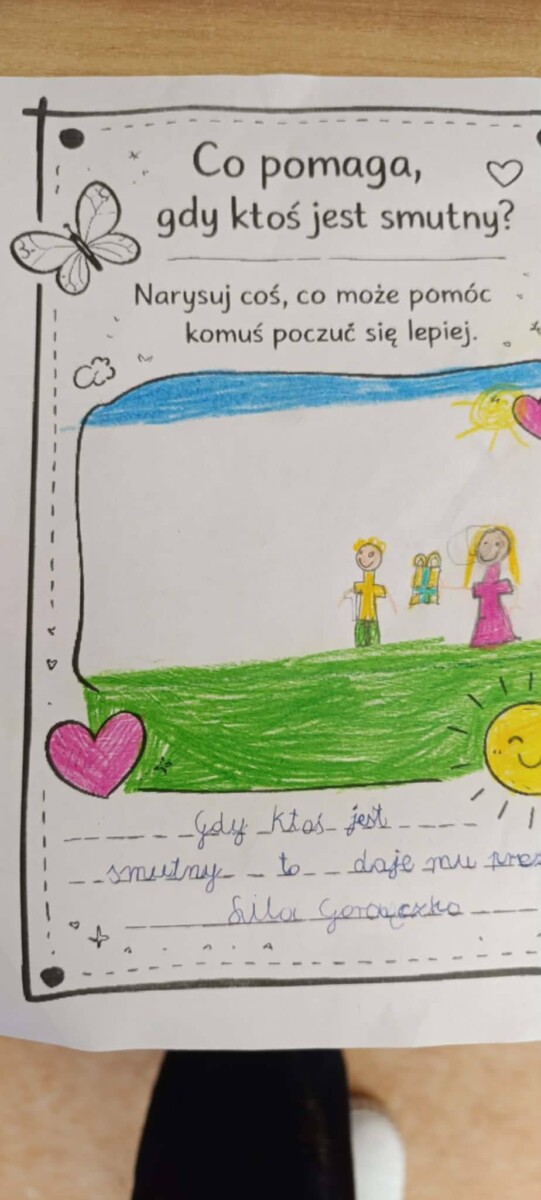 Co pomaga,
gdy ktoś jest smutny?
Narysuj coś, co może pomóc
komuś poczuć się lepiej.
Gdy ktoś jest
smutny to daje mu prez
Lila